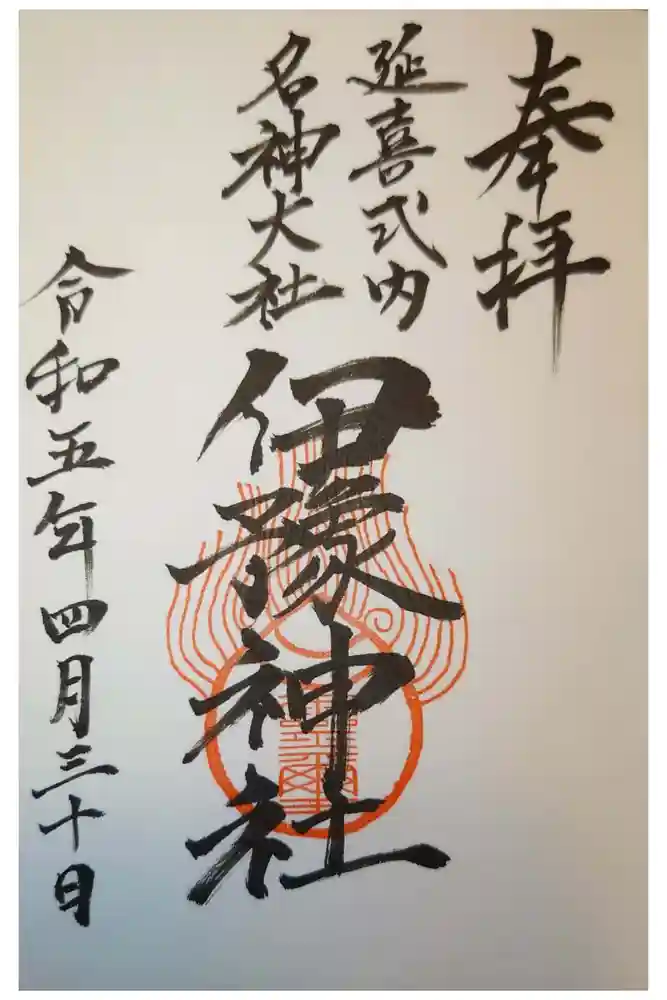 奉拝
延喜式内
名神大社
伊豫神社
令和五年四月三十日